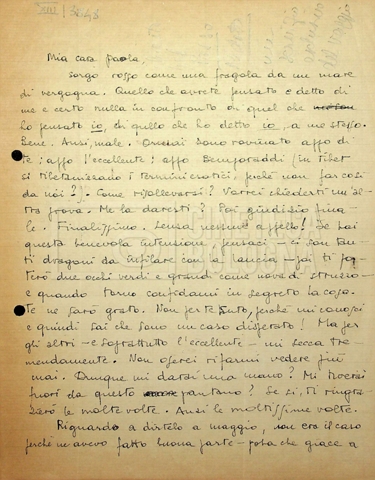 Mia cara Paola,
sorgo rosso come una fragola da un mare
di vergogna. Quello che avrete pensato e detto di
me è certo nulla in confronto di quel che
ho pensato io, di quello che ho detto io, a me stesso.
Bene. Anzi, male. Ormai sono rovinato appo di
te; appo l'eccellente; appo (in Tibet
si tibetanizzano i termini erotici, perché non far così
da noi?). Come risollevarsi? Vorrei chiederti un'al-
tra prova. Me la daresti? Poi giudizio fina
le. Finalissimo. Senza nessuno appello! Se hai
questa benevola intenzione, pensaci - ci son tan-
ti dragoni da infilare con la lancia - poi ti
terò due occhi verdi e grandi come uova di struzzo -
e quando torno confidami in segreto la cosa.
Te ne sarò grato. Non per te, perché mi conosci
e quindi sai che sono un caso disperato! Ma per
gli altri - e soprattutto l'eccellente - mi secca tre-
mendamente. Non oserei rifarmi vedere più
mai. Dunque mi darai una mano? Mi
fuori da questo pantano? Se sì, ti ringra-
zierò le molte volte. Anzi le moltissime volte.
Riguardo a dirtelo a maggio, non era il caso
perché ne avevo fatto buona parte - che giace a